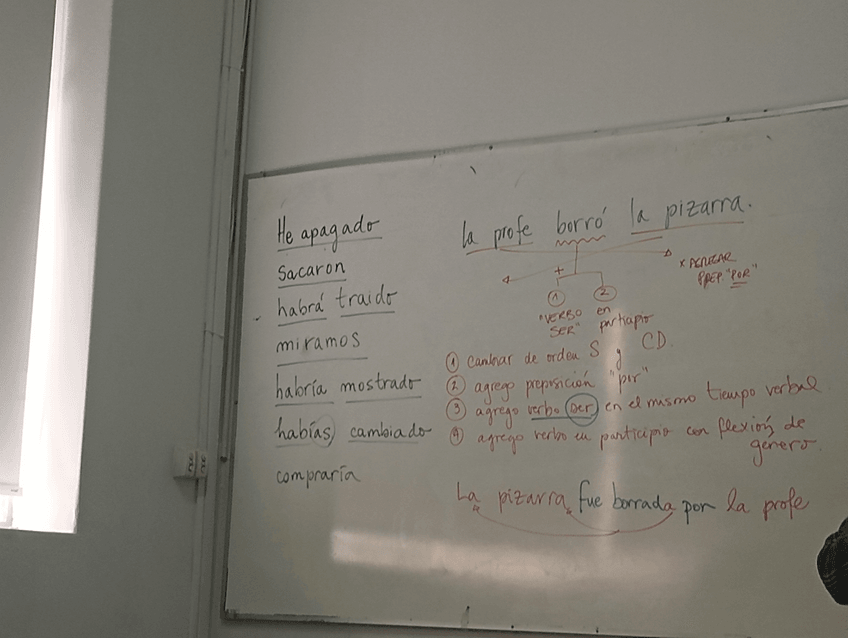 He apagado
sacaron
habrá traido
miramos
habría mostrado
habías cambiado
compraría
la profe borró la pizarra.
+
x AGREGAR
PREP. "POR"
① ②
"VERBO
SER"
en
participio
① cambiar de orden S y CD.
② agrego preposición "por"
③ agrego verbo ser en el mismo tiempo verbal
④ agrego verbo en participio con flexión de
género.
La pizarra fue borrada por la profe